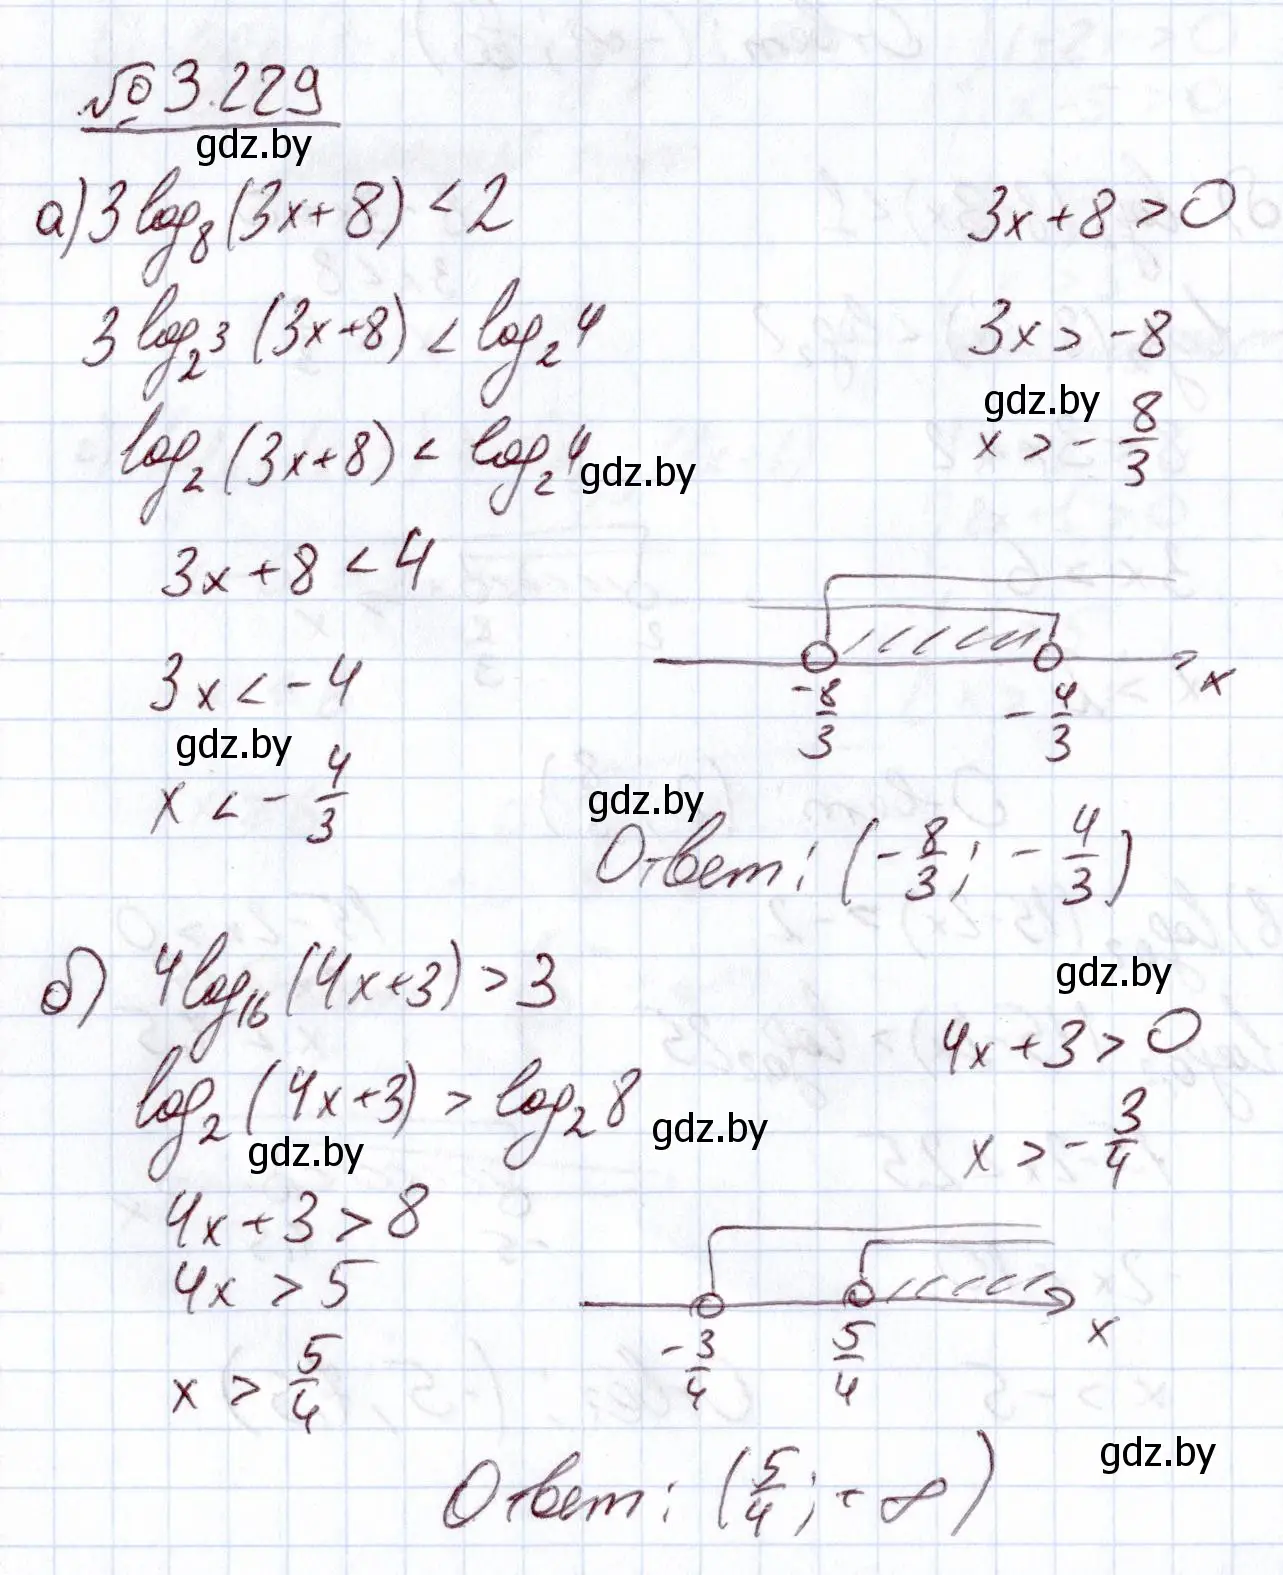 № 3.229
gdz.by
а) 3 log₈ (3x + 8) < 2
3x + 8 > 0
3 log₂³ (3x + 8) < log₂ 4
3x > -8
gdz.by
log₂ (3x + 8) < log₂ 4
x > - 8/3
gdz.by
3x + 8 < 4
3x < -4
x
-8/3
- 4/3
gdz.by
x < - 4/3
gdz.by
Ответ: (- 8/3; - 4/3)
б) 4 log₁₆ (4x + 3) > 3
gdz.by
4x + 3 > 0
log₂ (4x + 3) > log₂ 8
gdz.by
gdz.by
x > - 3/4
4x + 3 > 8
4x > 5
x
- 3/4
5/4
x > 5/4
gdz.by
Ответ: (5/4; + ∞)